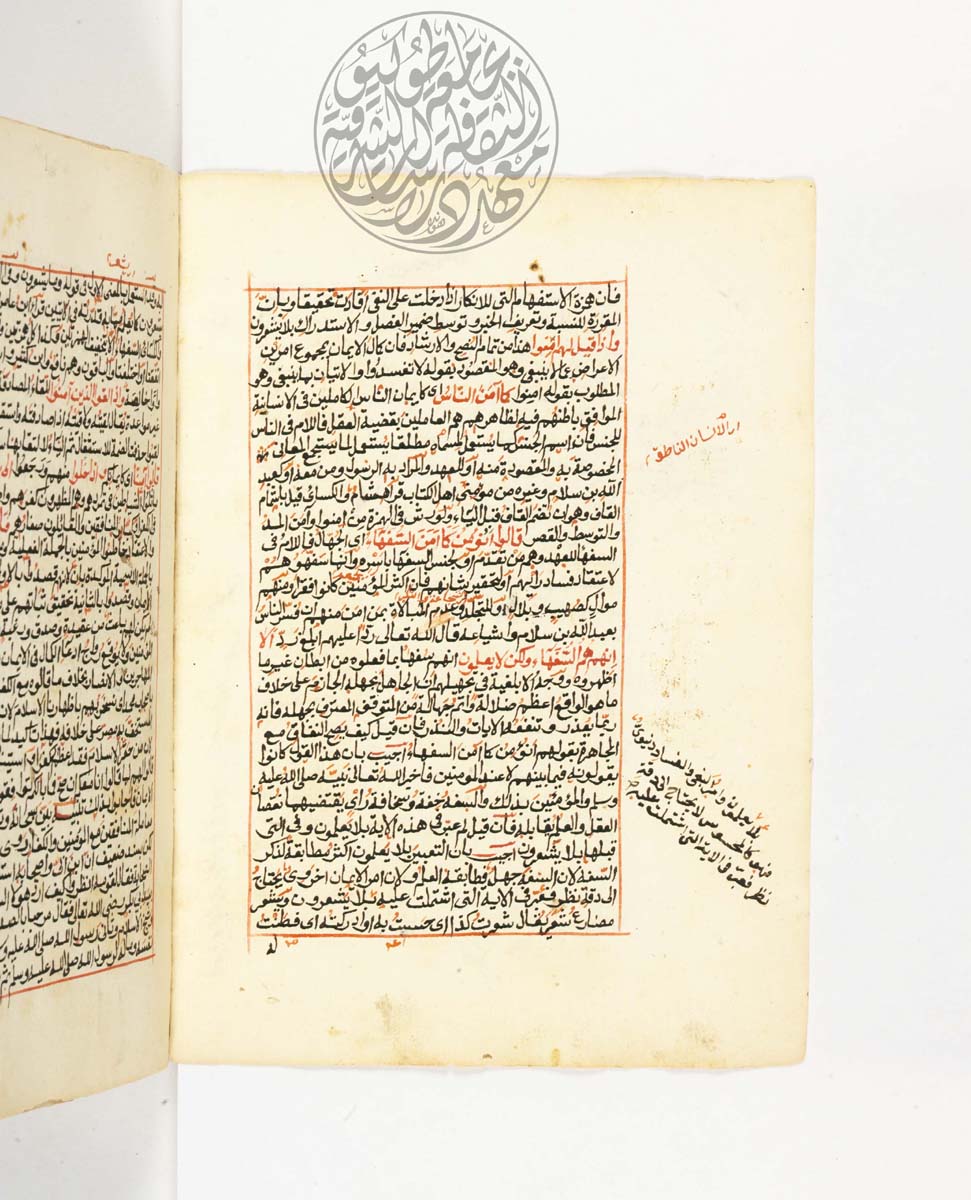 فان همزة الاستفهام التي للانكار اذا دخلت على النفي افادت تحقيقا وبان
المقررة للنسبة وتعريف الخبر وتوسط ضمير الفصل والاستدراك بلا يشعرون
واذا قيل لهم امنوا هذا من تمام النصح والارشاد فان كمال الايمان بمجموع امرين
الاعراض عما لا ينبغي وهو المقصود بقوله لا تفسدوا والاتيان بما ينبغي وهو
المطلوب بقوله امنوا كما آمن الناس اى كايمان الناس الكاملين في الانسانية
الموافق باطنهم فيه لظاهرهم هم العاملين بقضية العقل فاللام في الناس
للجنس فان اسم الجنس كما يستعمل لمسماه مطلقا يستعمل لما يستجمع المعاني
المخصوصة به والمقصودة منه او للعهد والمراد به الرسول ومن معه او عبد
الله بن سلام وغيره من مؤمني اهل الكتاب قرا هشام والكسائي قيل باشمام
القاف وهو ان تضم القاف قبل الياء ولورش في الهمزة من امنوا وآمن المد
والتوسط والقصر قالوا انؤمن كما آمن السفهاء اى الجهال فاللام في
السفها للعهد وهم من تقدم او لجنس السفها باسره وانما سفهوهم
لاعتقاد فساد رايهم او لتحقير شانهم فان اكثر المؤمنين كانوا فقرا ومنهم
موال كصهيب وبلال او للتجلد وعدم المبالاة بمن امن منهم ان فسر الناس
بعبد الله بن سلام واشياعه قال الله تعالى ردا عليهم ابلغ رد الا
انهم هم السفهاء ولكن لا يعلمون انهم سفها بما فعلوه من ابطان غير ما
اظهروه ووجه الابلغية في تجهيلهم ان الجاهل بجهله الجازم على خلاف
ما هو الواقع اعظم ضلالة واتم جهالة من المتوقف المعترف بجهله فانه
ربما يعذر وتنفعه الايات والنذر فان قيل كيف يصح النفاق مع
المجاهرة بقولهم انؤمن كما آمن السفهاء اجيب بان هذا القول كانوا
يقولونه فيما بينهم لا عند المومنين فاخبر الله تعالى نبيه صلى الله عليه
وسلم والمؤمنين بذلك والسفه خفة وسخافة رأى يقتضيهما نقصان
العقل والعلم يقابله فان قيل لم عبر في هذه الاية بلا يعلمون وفي التي
قبلها بلا يشعرون اجيب بان التعبير بلا يعلمون اكثر مطابقة لذكر
السفه لان السفه جهل فطابقه العلم ولان امر الايمان اخروى يحتاج
الى دقة نظر فعبر في الاية التي اشتملت عليه بلا يشعرون ويشعر
مضارع شعر يقال شعرت كذا اى حسست به او ادركته اى فطنت
له
اى الانسان الناطق
بلا يعلمون وامر البغي والفساد دنيوي
فهو كالمحسوس لا يحتاج الى دقة
نظر فعبر في الاية التي اشتملت عليه